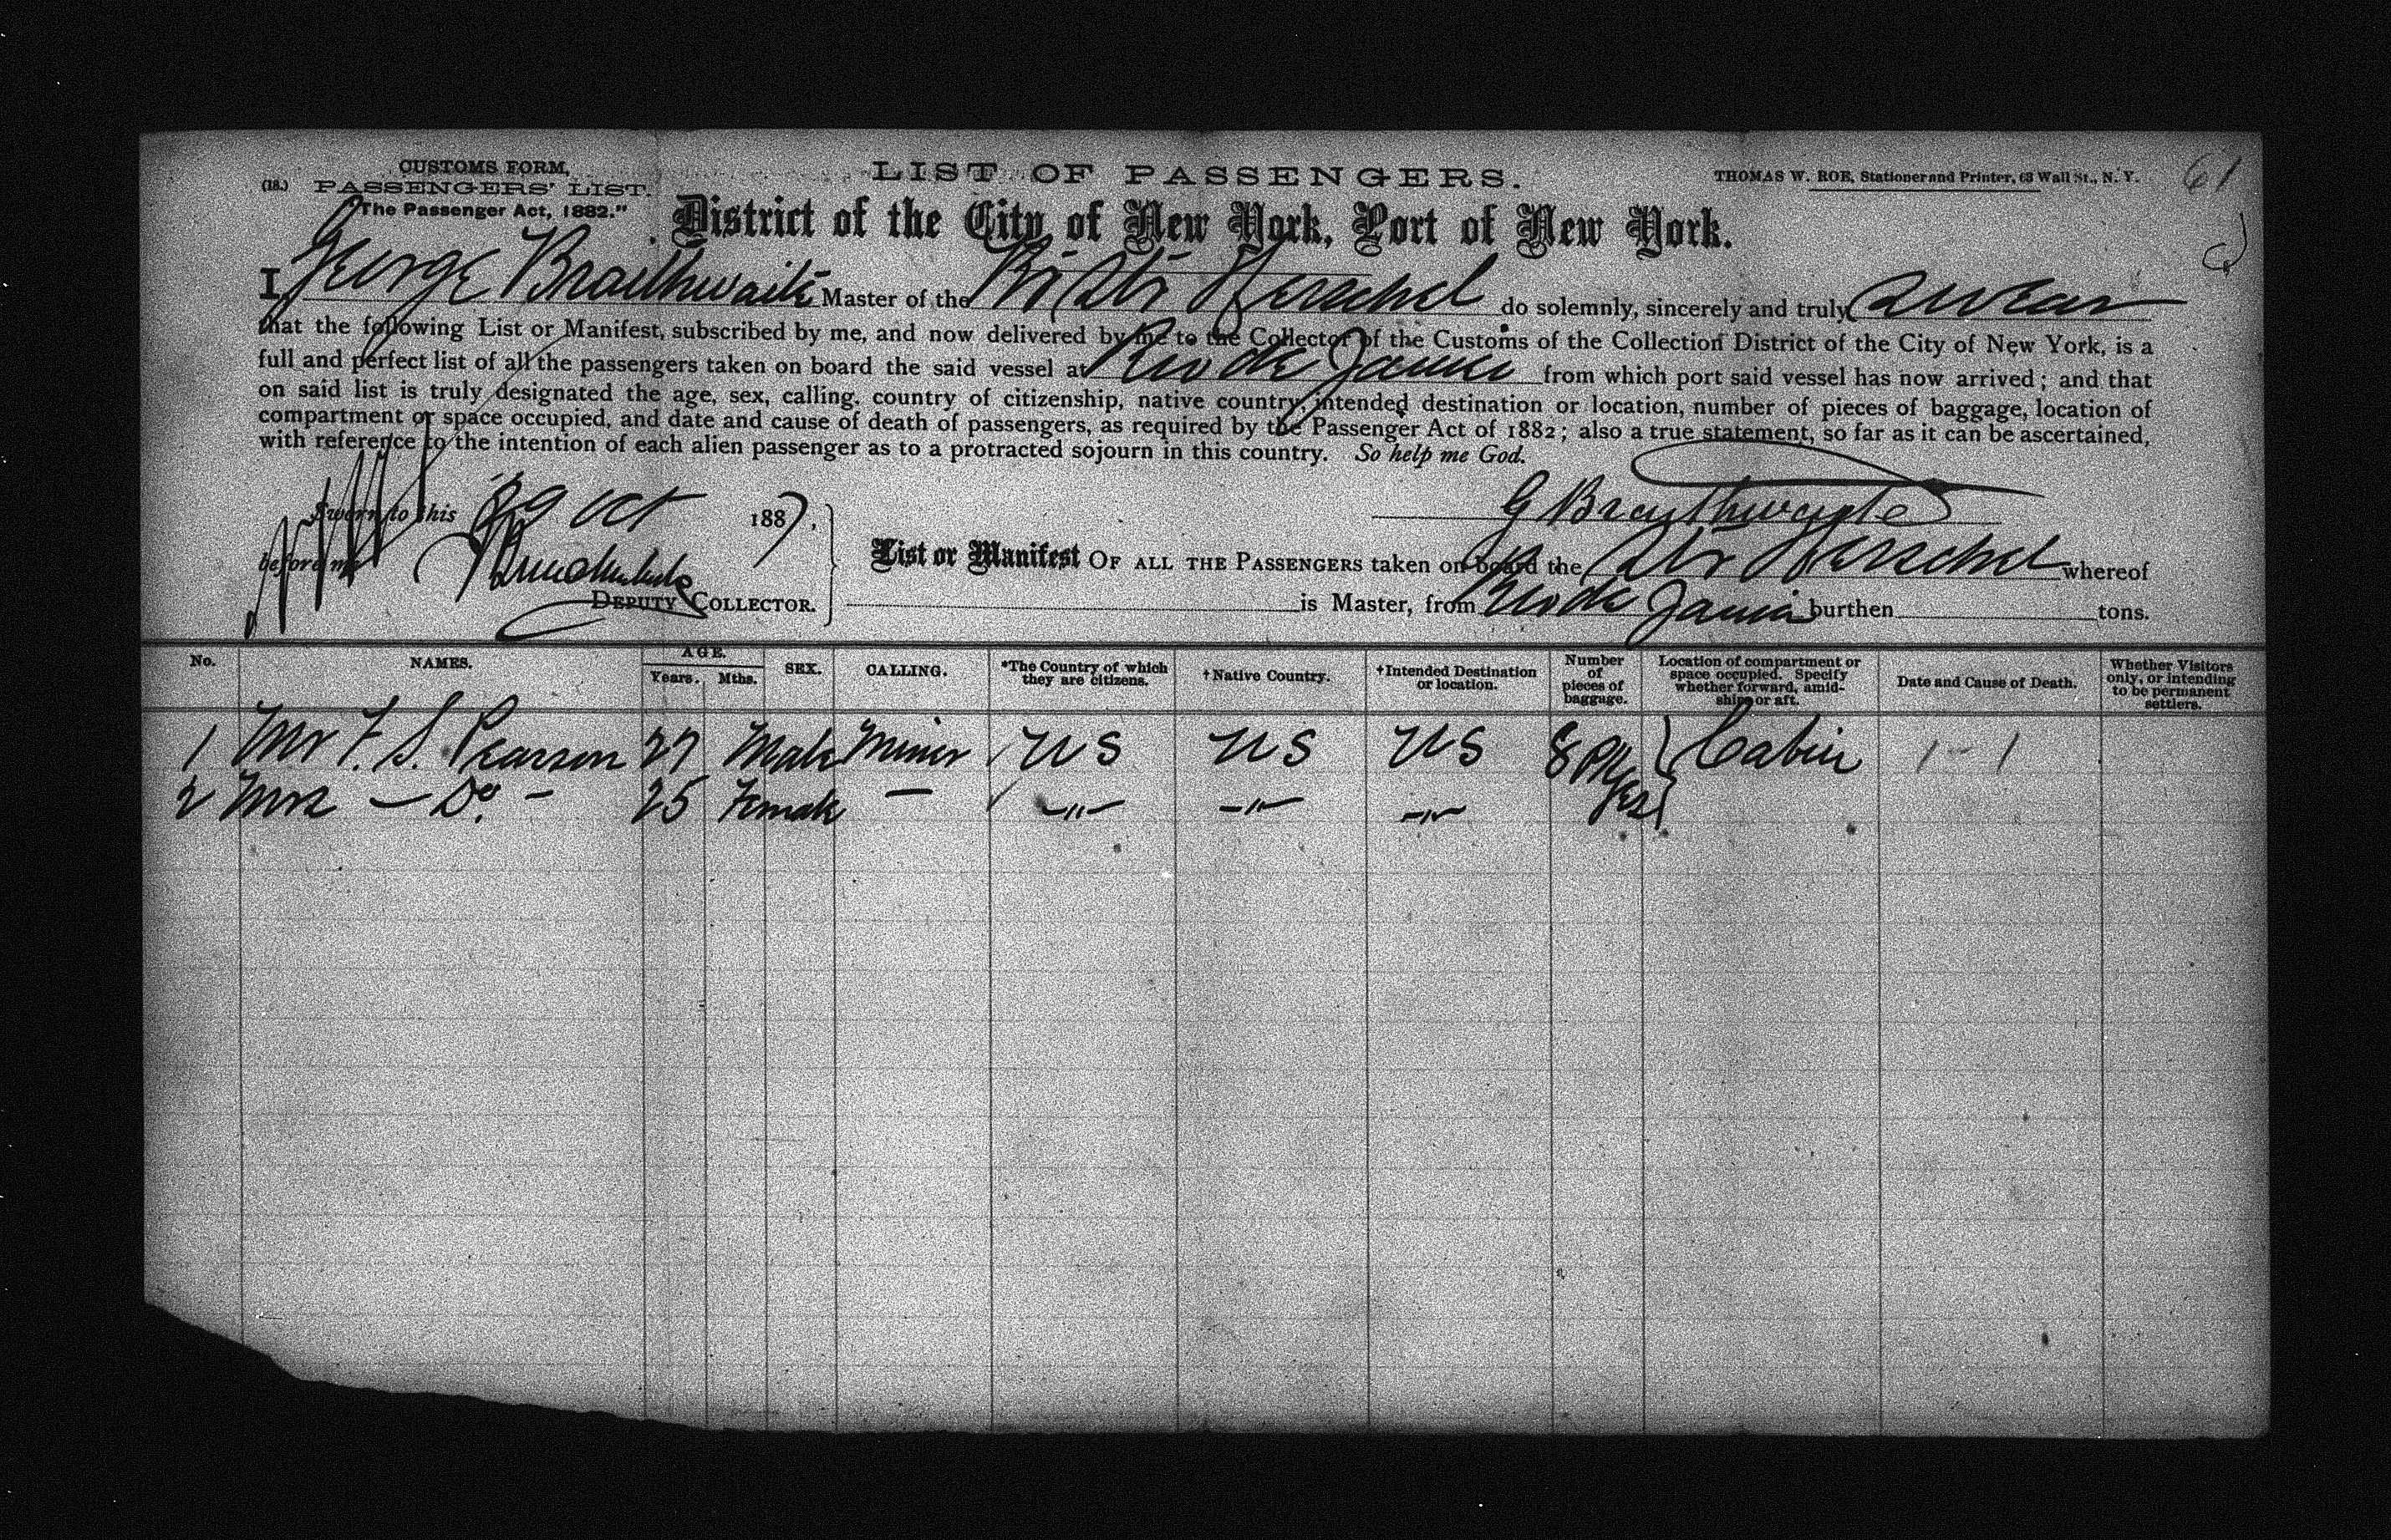 CUSTOMS FORM,
(18.) PASSENGERS' LIST.
"The Passenger Act, 1882."
LIST OF PASSENGERS.
THOMAS W. ROE, Stationer and Printer, 63 Wall St., N. Y.
61
District of the City of New York, Port of New York.
I, George Braithwaite Master of the Br Str Herschel do solemnly, sincerely and truly swear
that the following List or Manifest, subscribed by me, and now delivered by me to the Collector of the Customs of the Collection District of the City of New York, is a
full and perfect list of all the passengers taken on board the said vessel at Rio de Janeiro from which port said vessel has now arrived; and that
on said list is truly designated the age, sex, calling, country of citizenship, native country, intended destination or location, number of pieces of baggage, location of
compartment or space occupied, and date and cause of death of passengers, as required by the Passenger Act of 1882; also a true statement, so far as it can be ascertained,
with reference to the intention of each alien passenger as to a protracted sojourn in this country. So help me God.
Sworn to this 29 Oct 1887,
G Braithwaite
before me
DEPUTY COLLECTOR.
List or Manifest OF ALL THE PASSENGERS taken on board the Str Herschel whereof
is Master, from Rio de Janeiro burthen tons.
No. NAMES. AGE. Years. Mths. SEX. CALLING. *The Country of which they are citizens. †Native Country. †Intended Destination or location. Number of pieces of baggage. Location of compartment or space occupied. Specify whether forward, amidships or aft. Date and Cause of Death. Whether Visitors only, or intending to be permanent settlers.
1 Mr F. S. Pearson 27 Male Miner U S U S U S 8 Pkges Cabin
2 Mrs — Do — 25 Female — —"— —"— —"—